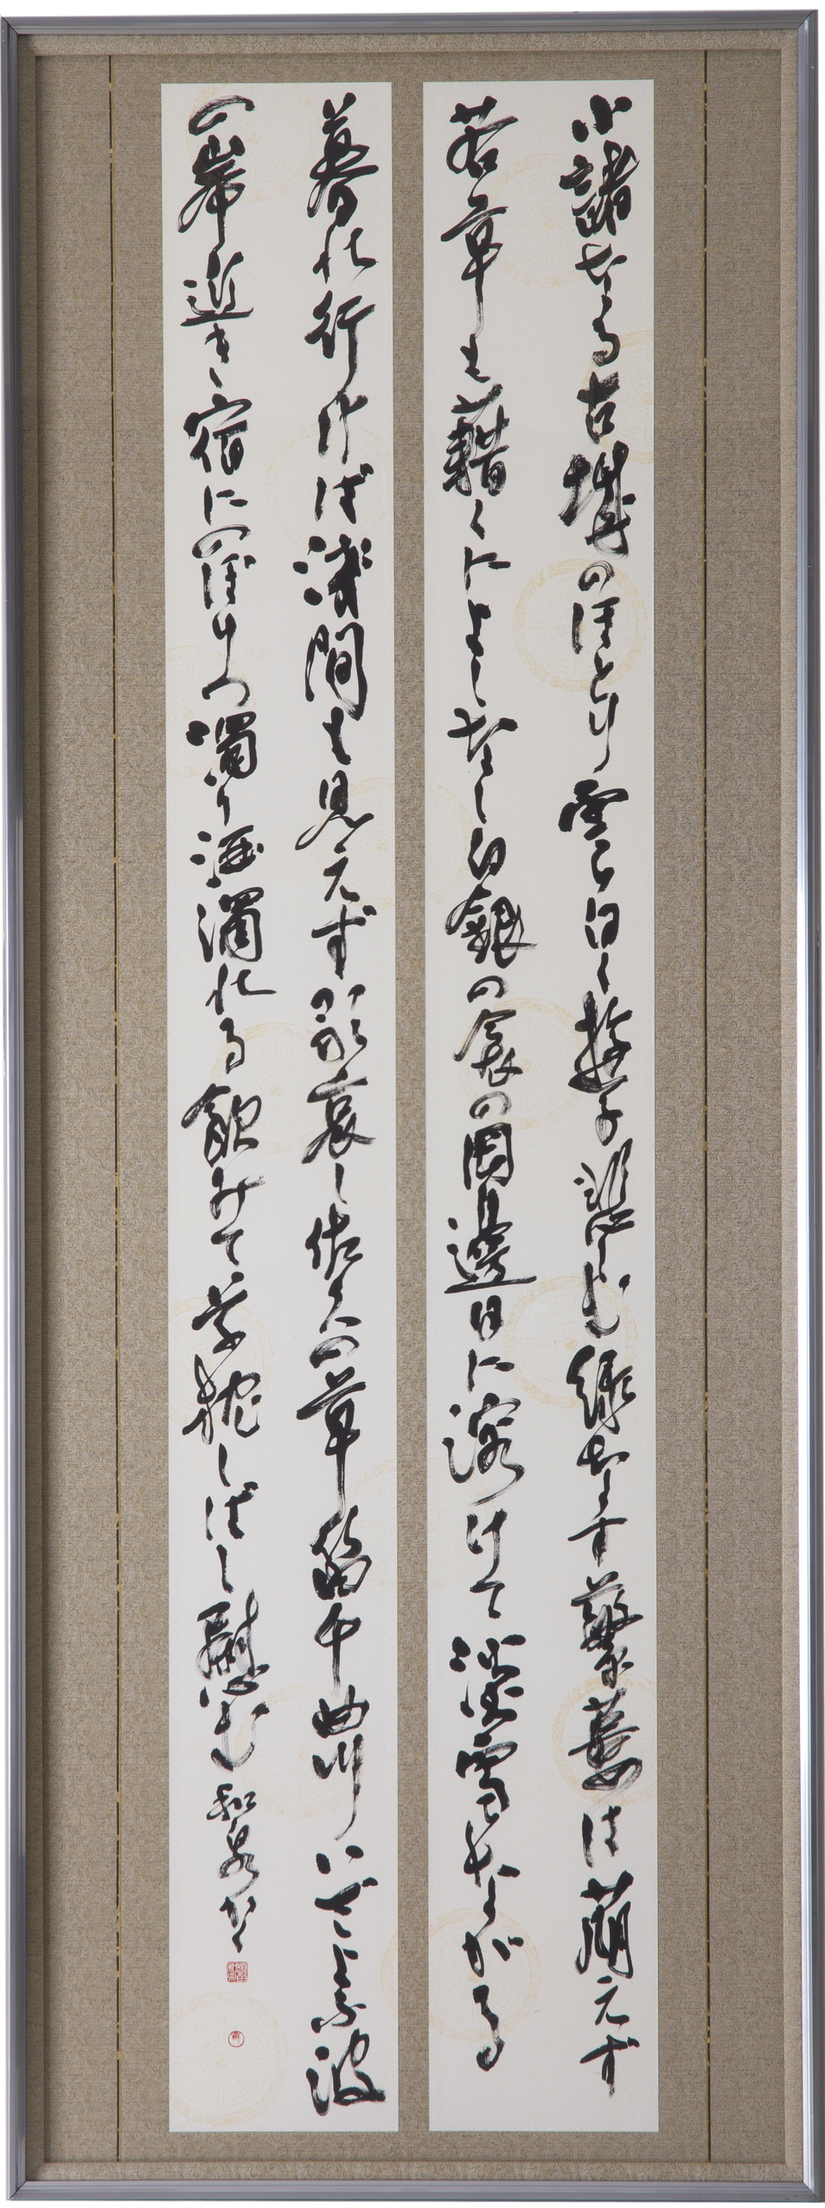 小諸なる古城のほとり雲白く遊子悲しむ緑なす蘩蔞は萌えず
若草も藉くによしなし白銀の衾の岡邊日に溶けて淡雪ながる
暮れ行けば淺間も見えず歌哀し佐久の草笛千曲川いざよふ波
の岸近き宿にのぼりつ濁り酒濁れる飲みて草枕しばし慰む 和泉かく